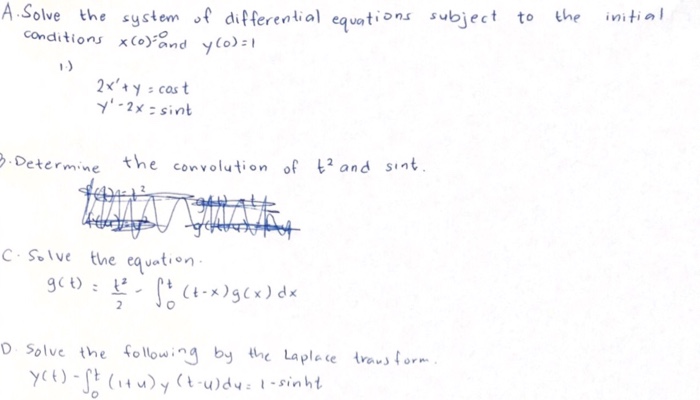 A. Solve the system of differential equations subject to the initial
conditions x(0)=0 and y(0)=1
1.)
2x'+y = cos t
y'-2x = sint
B. Determine the convolution of t² and sint.
C. Solve the equation.
g(t) = t²/2 - ∫₀ᵗ (t-x)g(x) dx
D. Solve the following by the Laplace transform.
y(t) - ∫₀ᵗ (1+u) y (t-u) du = 1 - sinht